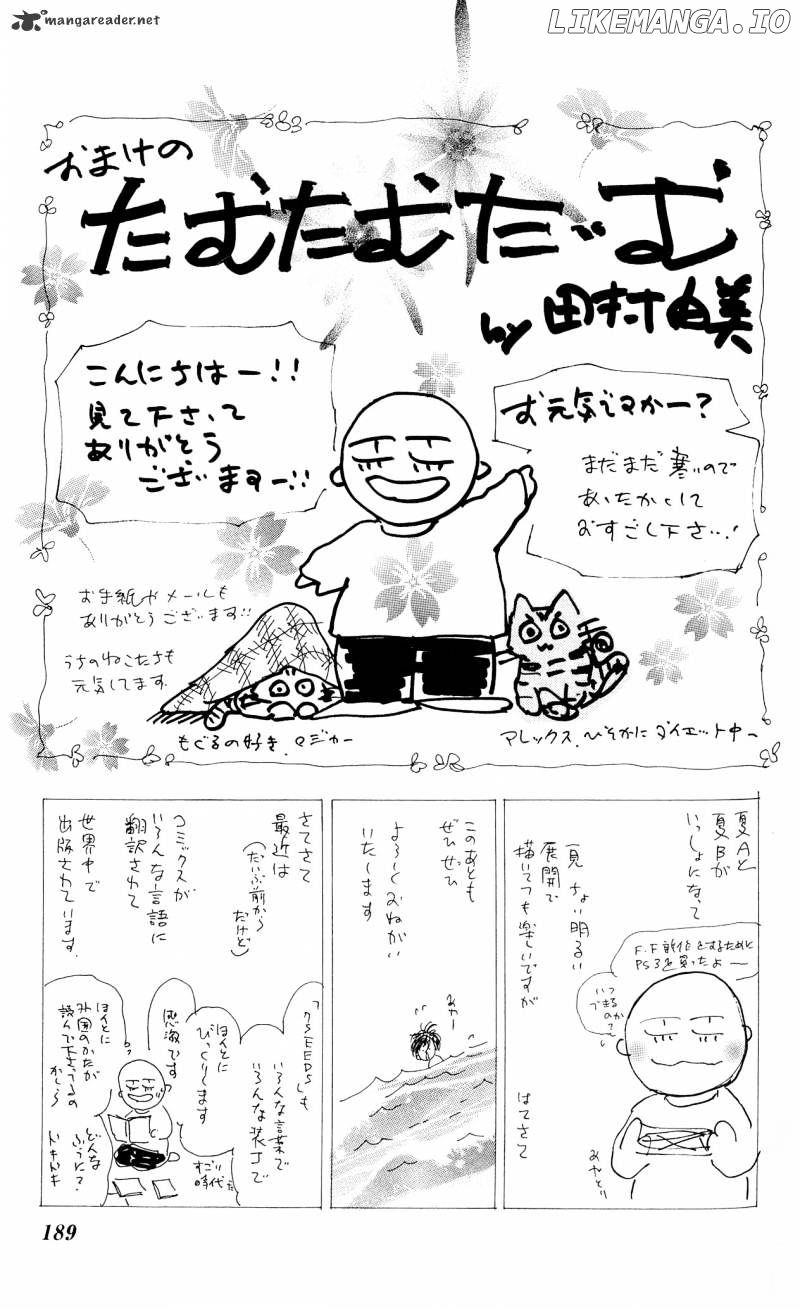 mangareader.net
LIKEMANGA.IO
おまけの
たむたむたいむ
by 田村由美
こんにちはー!!
見て下さって
ありがとう
ございますー!!
お元気ですかー?
まだまだ寒いので
あったかくして
おすごし下さい!
お手紙やメールも
ありがとうございます!!
うちのねこたちも
元気してます
もぐるの好き、マジカー
アレックス、ひそかにダイエット中ー
夏Aと
夏Bが
いっしょになって
一見ちょい明るい
展開で
描いてても楽しいですが
はてさて
F.F新作をするために
PS3を買ったよー
いつ
できるのか?
あやとり
このあとも
ぜひぜひ
よろしくおねがい
いたします
みゃー
さてさて
最近は
(だいぶ前から
だけど)
コミックスが
いろんな言語に
翻訳されて
世界中で
出版されています
「7SEEDS」も
いろんな言葉で
いろんな装丁で
ほんとに
びっくりします
感激です
すごい
時代だ
ほんとに
外国のかたが
読んで下さってるの
かしら
どんな
ふうに?
ドキドキ
189